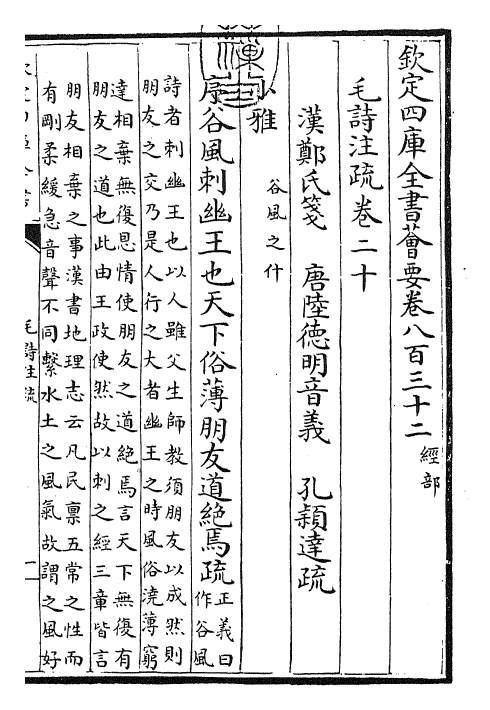 欽定四庫全書薈要卷八百三十二 經部
毛詩注疏卷二十
漢鄭氏箋 唐陸德明音義 孔穎達疏
小雅
谷風之什
序谷風刺幽王也天下俗薄朋友道絶焉疏正義曰
作谷風
詩者刺幽王也以人雖父生師教須朋友以成然則
朋友之交乃是人行之大者幽王之時風俗澆薄窮
達相棄無復恩情使朋友之道絶焉言天下無復有
朋友之道也此由王政使然故以刺之經三章皆言
朋友相棄之事漢書地理志云凡民稟五常之性而
有剛柔緩急音聲不同繫水土之風氣故謂之風好
毛詩注疏
一